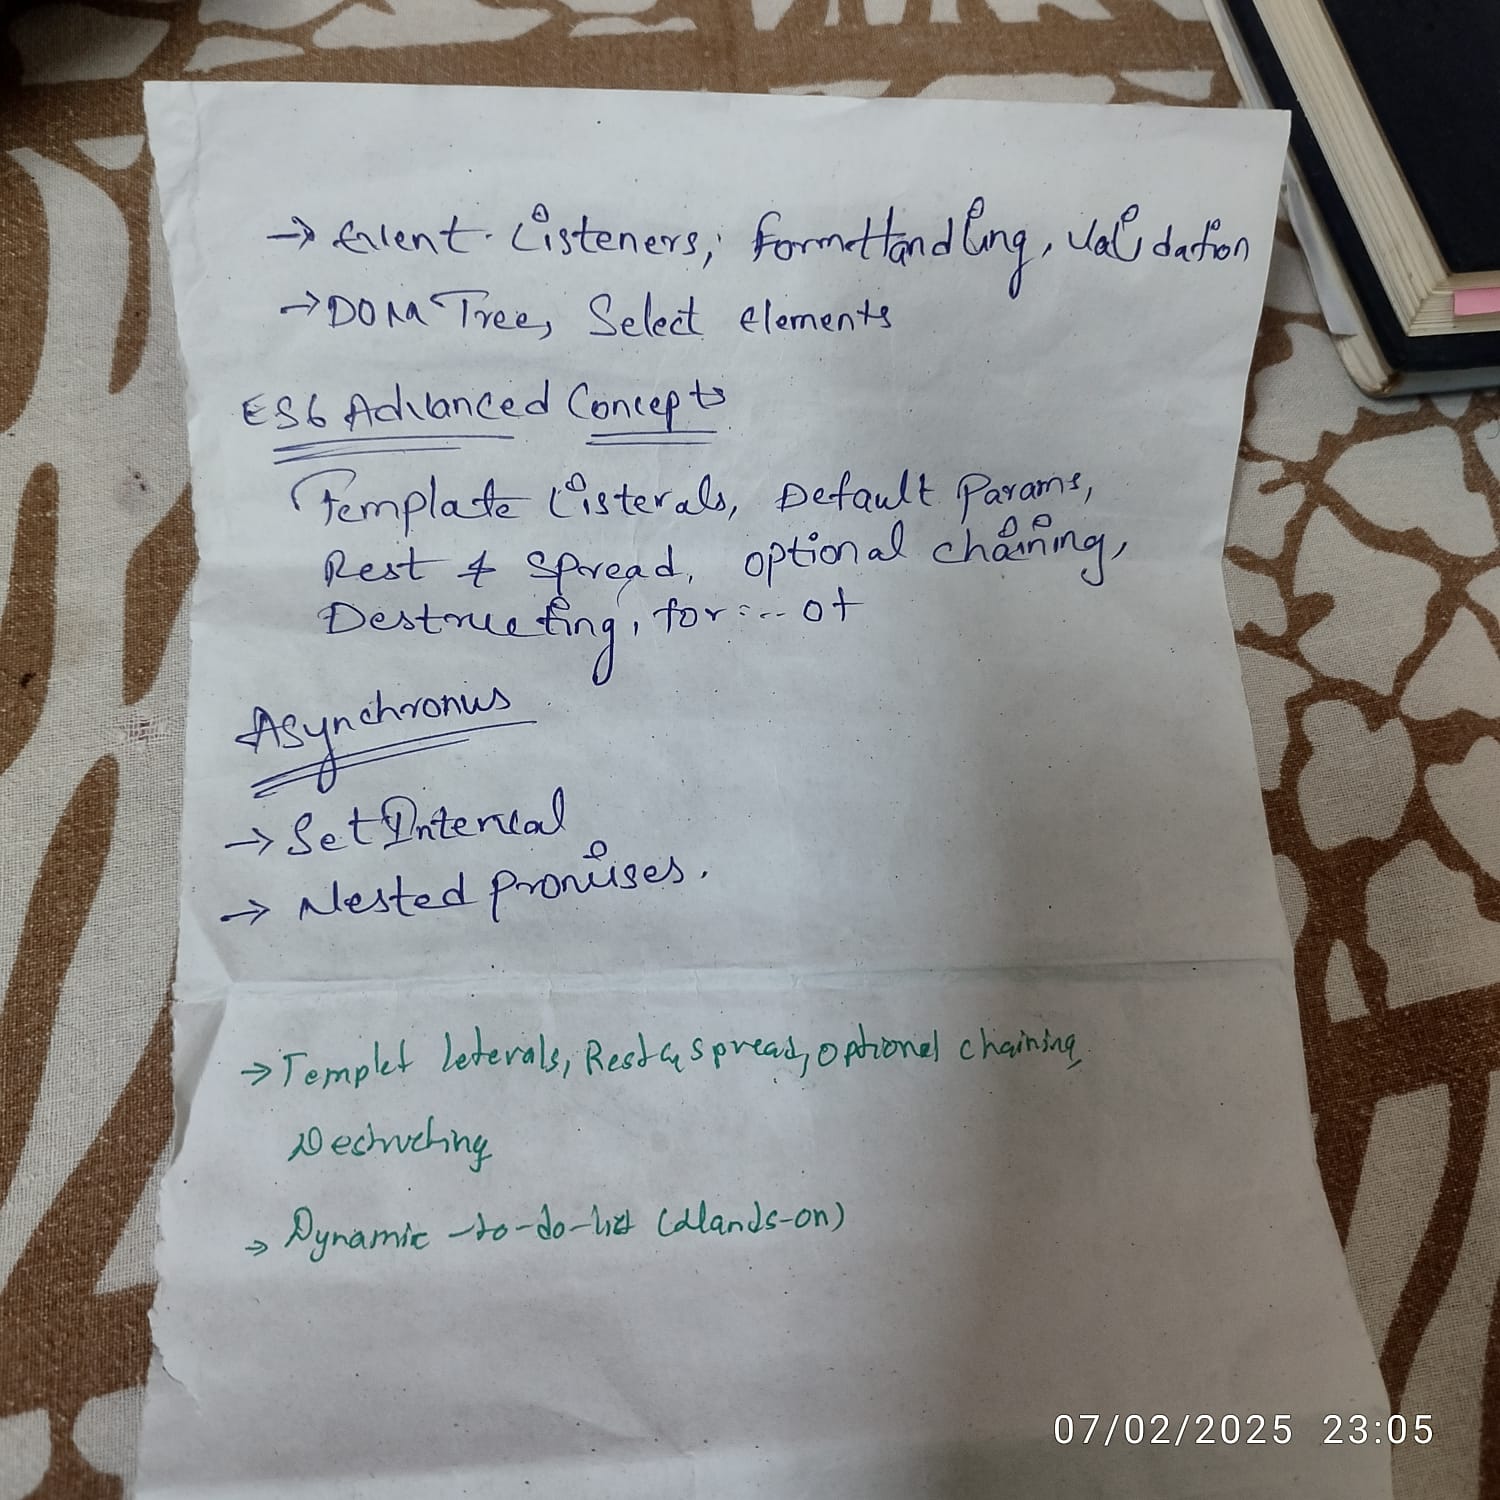 → Event Listeners, Form Handling, Validation
→ DOM Tree, Select elements
ES6 Advanced Concepts
Template Listerals, Default Params,
Rest & Spread, optional chaining,
Destructing, for... of
Asynchronus
→ Set Interval
→ Nested Promises.
→ Templet leterals, Rest & spread, optional chaining
Destructing
→ Dynamic -to-do-list (Hands-on)
07/02/2025 23:05